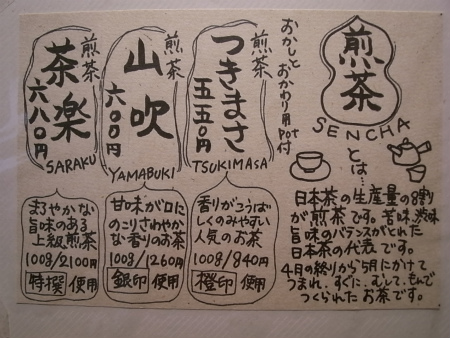 煎茶
SENCHA
とは…
日本茶の生産量の8割
が煎茶です。苦味、渋味
旨味のバランスがとれた
日本茶の代表です。
4月の終りから5月にかけて
つまれ、すぐに、むして、もんで
つくられたお茶です。
おかしと
おかわり用Pot付
煎茶
つきまさ
五五〇円
TSUKIMASA
香りがこうば
しくのみやすい
人気のお茶
100g/840円
橙印 使用
煎茶
山吹
六〇〇円
YAMABUKI
甘味が口に
のこりさわやか
な香りのお茶
100g/1260円
銀印 使用
煎茶
茶楽
六八〇円
SARAKU
まろやかな
旨味のある
上級煎茶
100g/2100円
特撰 使用